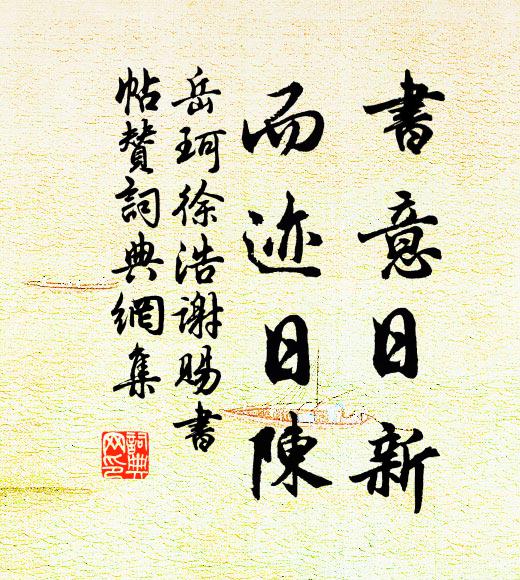 書意日新
而迹日陳
岳珂徐浩謝賜書
帖贊詞典網集
詞典網印